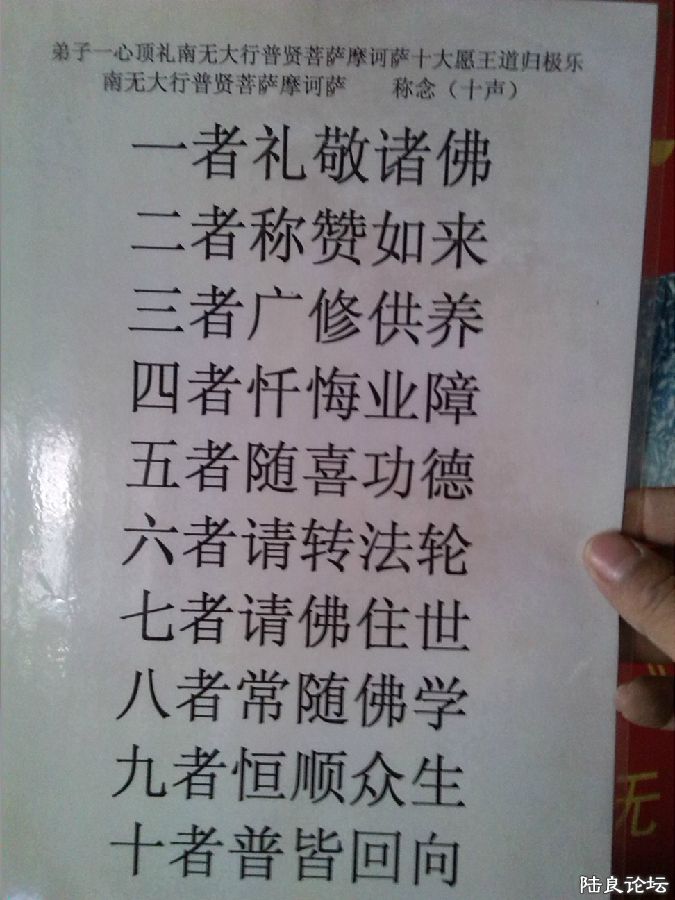 弟子一心顶礼南无大行普贤菩萨摩诃萨十大愿王道归极乐
南无大行普贤菩萨摩诃萨 称念（十声）
一者礼敬诸佛
二者称赞如来
三者广修供养
四者忏悔业障
五者随喜功德
六者请转法轮
七者请佛住世
八者常随佛学
九者恒顺众生
十者普皆回向
无
陆良论坛